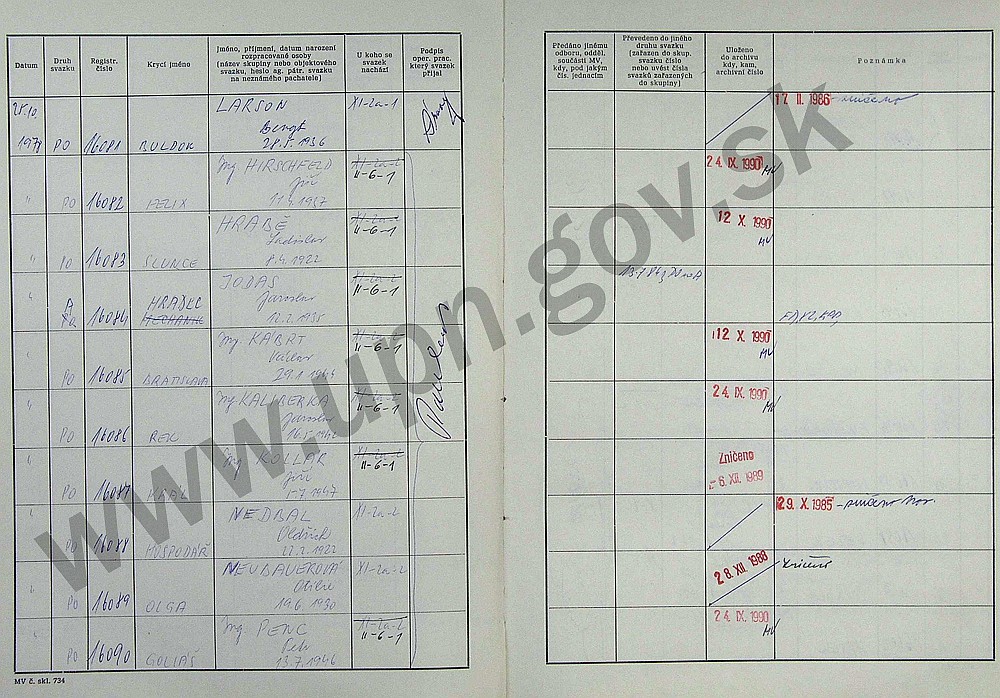 Datum
Druh
svazku
Registr.
číslo
Krycí jméno
Jméno, příjmení, datum narození
rozpracované osoby
(název skupiny nebo objektového
svazku, heslo ag. pátr. svazku
na neznámého pachatele)
U koho se
svazek
nachází
Podpis
oper. prac.
který svazek
přijal
Předáno jinému
odboru, odděl.
součásti MV,
kdy, pod jakým
čís. jednacím
Převedeno do jiného
druhu svazku
(zařazen do skup.
svazku číslo
nebo uvést čísla
svazků zařazených
do skupiny)
Uloženo
do archivu
kdy, kam,
archivní číslo
Poznámka
25.10. LARSON XI-2a-1 17. II. 1986 - zničeno
Bengt
PO 16081 BULDOK 28.5.1936
Ing HIRSCHFELD XI-2a-2 24. IX. 1990 MV
Jiří II-6-1
" PO 16082 FELIX 11.4.1937
HRABĚ XI-2a-2 12. X. 1990
Ladislav II-6-1 MV
" PO 16083 SLUNCE 8.4.1922
JODAS XI-2a-2
HRADEC Jaroslav II-6-1
16084 MECHANIK 12.2.1935
Ing. KÁBRT XI-2a-2 12. X. 1990
Václav II-6-1 MV
PO 16085 BRATISLAVA 29.1.1944
Ing KALIBERKA XI-2a-2 24. IX. 1990
Jaroslav II-6-1 MV
PO 16086 REK
Ing KOLLÁR XI-2a-2 Zničeno
Jiří II-6-1 - 6. XII. 1989
PO 16087 KRÁL 1.7.1947
NEDBAL XI-2a-2 29. X. 1985 - zničeno
Oldřich
PO 16088 HOSPODÁŘ 22.2.1922
NEUBAUEROVÁ XI-2a-2 28. XII. 1988 zničeno
Otilie
PO 16089 OLGA 19.6.1930
Ing PENC XI-2a-2 24. IX. 1990
Petr II-6-1 MV
PO 16090 GOLIÁŠ 13.7.1946
MV č. skl. 734
www.upn.gov.sk